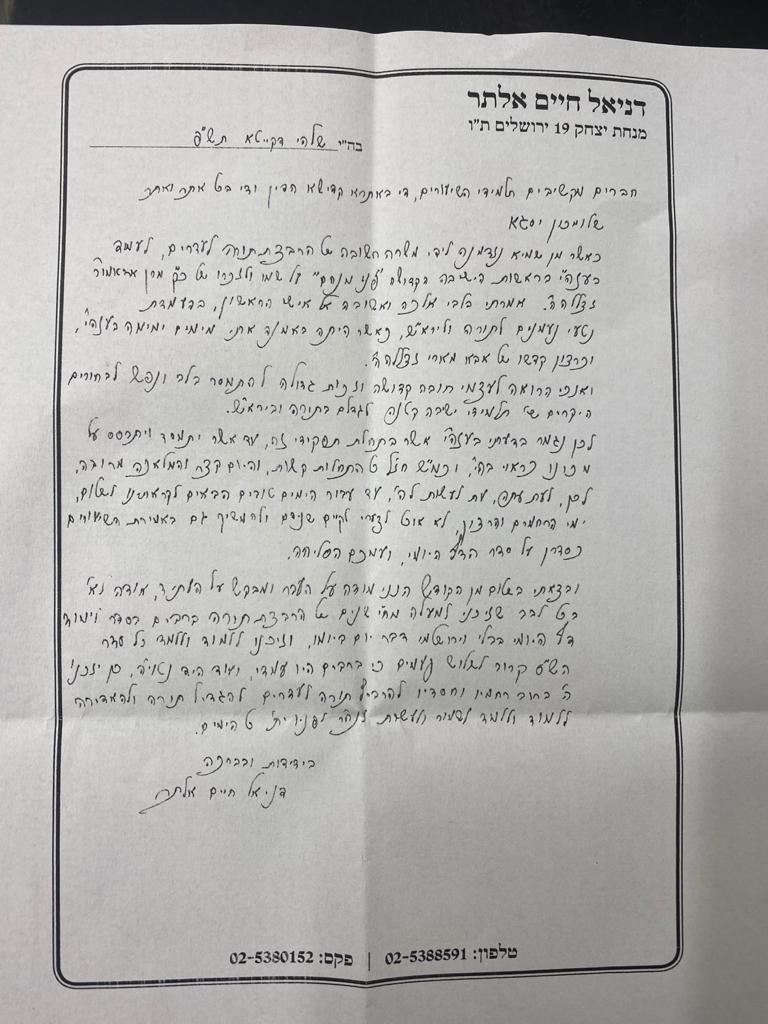 דניאל חיים אלתר
מנחת יצחק 19 ירושלים ת"ו
בה"י שלהי דקייטא תש"פ
חברים מקשיבים תלמידי השיעורים, די באתרא קדישא הדין ודי בכל אתר ואתר
שלומכון יסגא
כאשר מן שמיא נזדמנה לידי משרה חשובה של הרבצת תורה לעדרים, לעמוד
בעזהי"ת בראשות הישיבה הקדושה "פני מנחם" על שמו ולזכרו של כ"ק מרן אדאמו"ר
זצללה"ה. אמרתי בלבי אלכה ואשובה אל אישי הראשון, בהעמדת
נטעי נעמנים לתורה וליראי"ש, כאשר היתה באמנה אתי מימים ימימה בעזהי"ת,
וכרצון קדשו של אבא מארי זצללה"ה.
ואנכי הרואה לעצמי חובה קדושה וזכות גדולה להתמסר בלב ונפש לבחורים
היקרים שי' תלמידי ישיבה קטנה לגדלם בתורה וביראי"ש.
לכן נגמר בדעתי בעזהי"ת אשר בתחלת תפקידי זה, עד אשר יתמסד ויתבסס על
מכונו כראוי בה"י, וכמ"ש חז"ל כל התחלות קשות, והיום קצר והמלאכה מרובה,
לכן, לעת עתה, עת לעשות לה', עד עבור הימים טובים הבאים לקראתינו לשלום,
ימי הרחמים והרצון, לא אוכל לצערי לקיים שניהם ולהמשיך גם באמירת השיעורים
כסדרן על סדר הדף היומי, ועמכם הסליחה.
ובצאתי בשלום מן הקודש הנני מודה על העבר ומבקש על העתיד, אודה לא-ל
בכל לבב שזיכני למעלה מח"י שנים של הרבצת תורה ברבים בסדר לימוד
דף היומי בבלי וירושלמי דבר יום ביומו, וזיכנו ללמוד וללמד כל סדר
הש"ס קרוב לשלוש פעמים כי ברבים היו עמדי, ועוד היד נטויה, כן יזכנו
ה' ברוב רחמיו וחסדיו להרביץ תורה לעדרים להגדיל תורה ולהאדירה
ללמוד וללמד לשמור ולעשות לנח"ר לפניו ית' כל הימים.
בידידות ובברכה
דניאל חיים אלתר
טלפון: 02-5388591 | פקס: 02-5380152